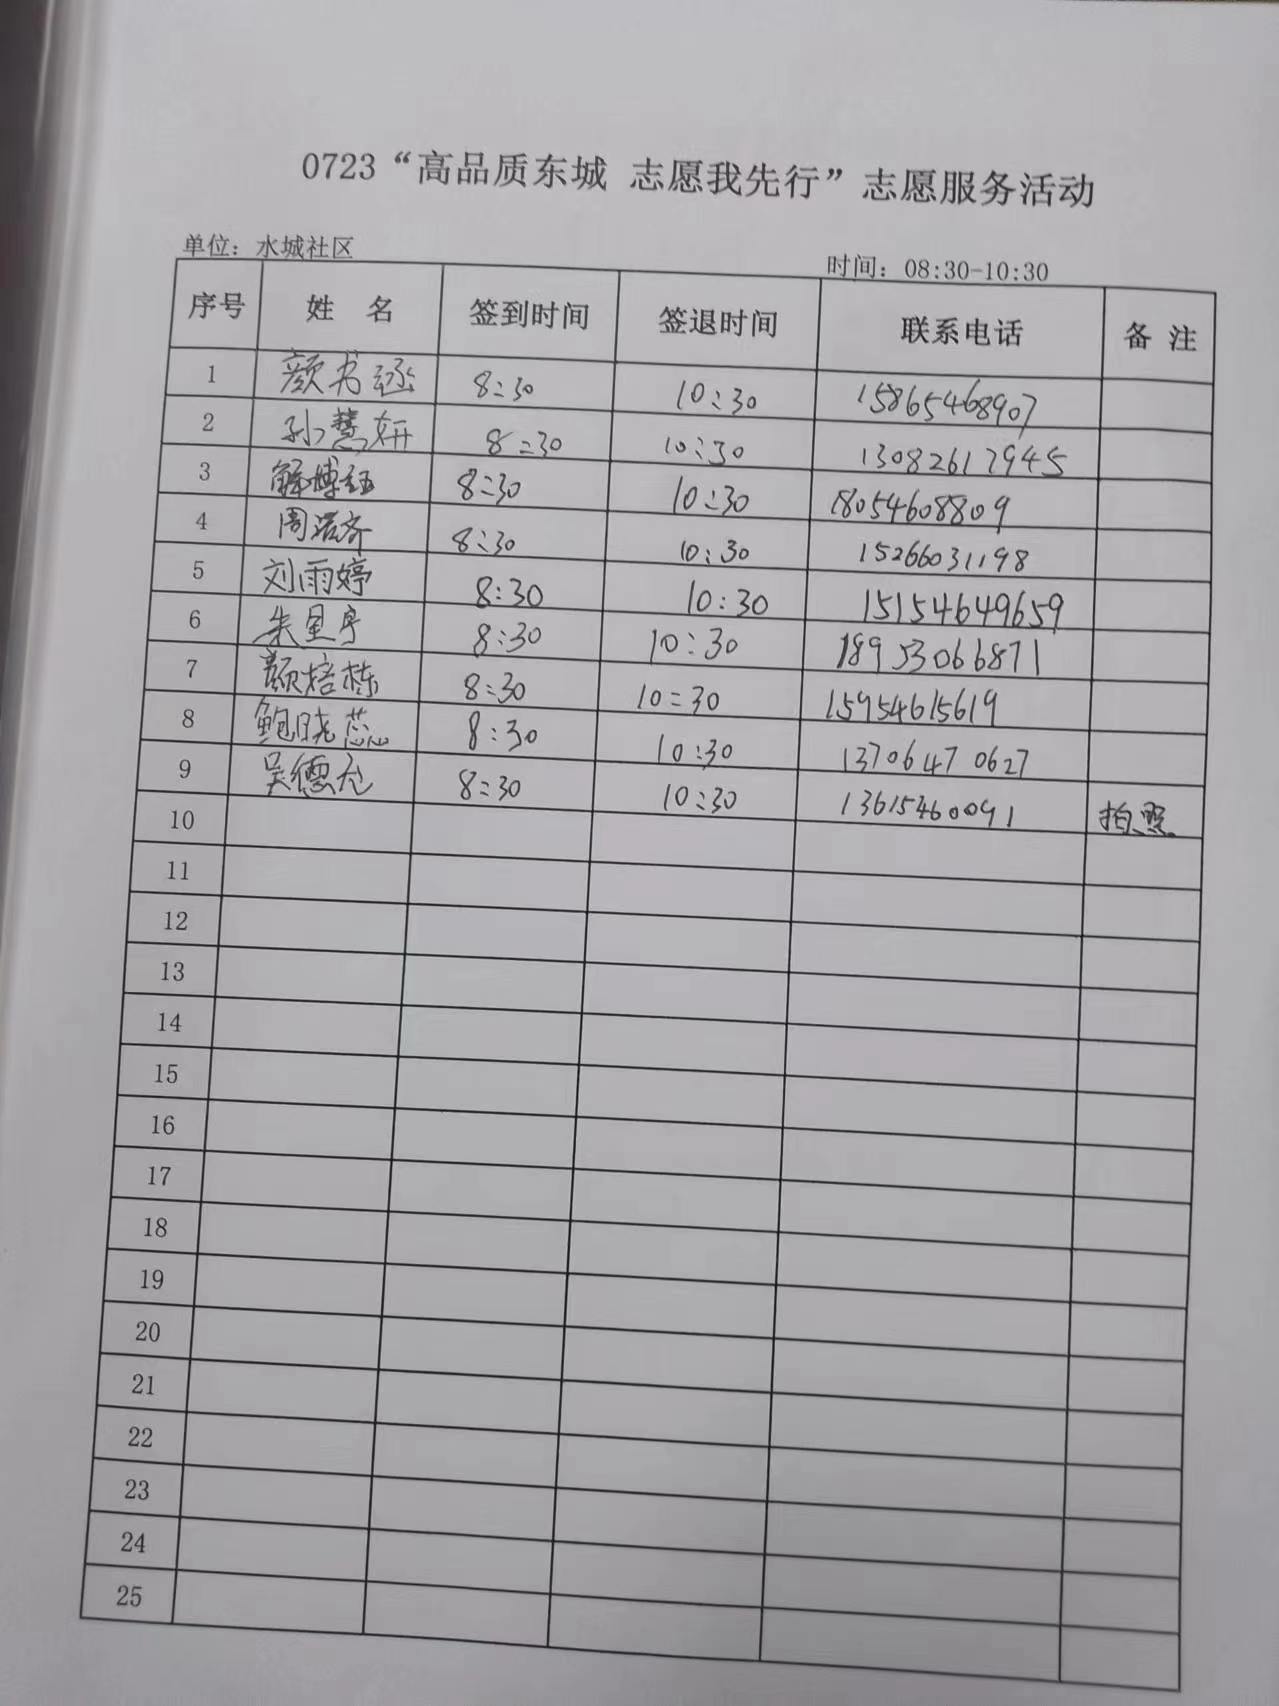 0723“高品质东城 志愿我先行”志愿服务活动
单位：水城社区
时间：08:30-10:30
序号 姓 名 签到时间 签退时间 联系电话 备 注
1 颜书涵 8:30 10:30 15865468907
2 孙慧妍 8:30 10:30 13082617945
3 解博钰 8:30 10:30 18054608809
4 8:30 10:30 15266031198
5 刘雨婷 8:30 10:30 15154649659
6 8:30 10:30 18953066871
7 颜培栋 8:30 10:30 15954615619
8 鲍晓蕊 8:30 10:30 13706470627
9 吴德允 8:30 10:30 13615460091 拍照
10
11
12
13
14
15
16
17
18
19
20
21
22
23
24
25